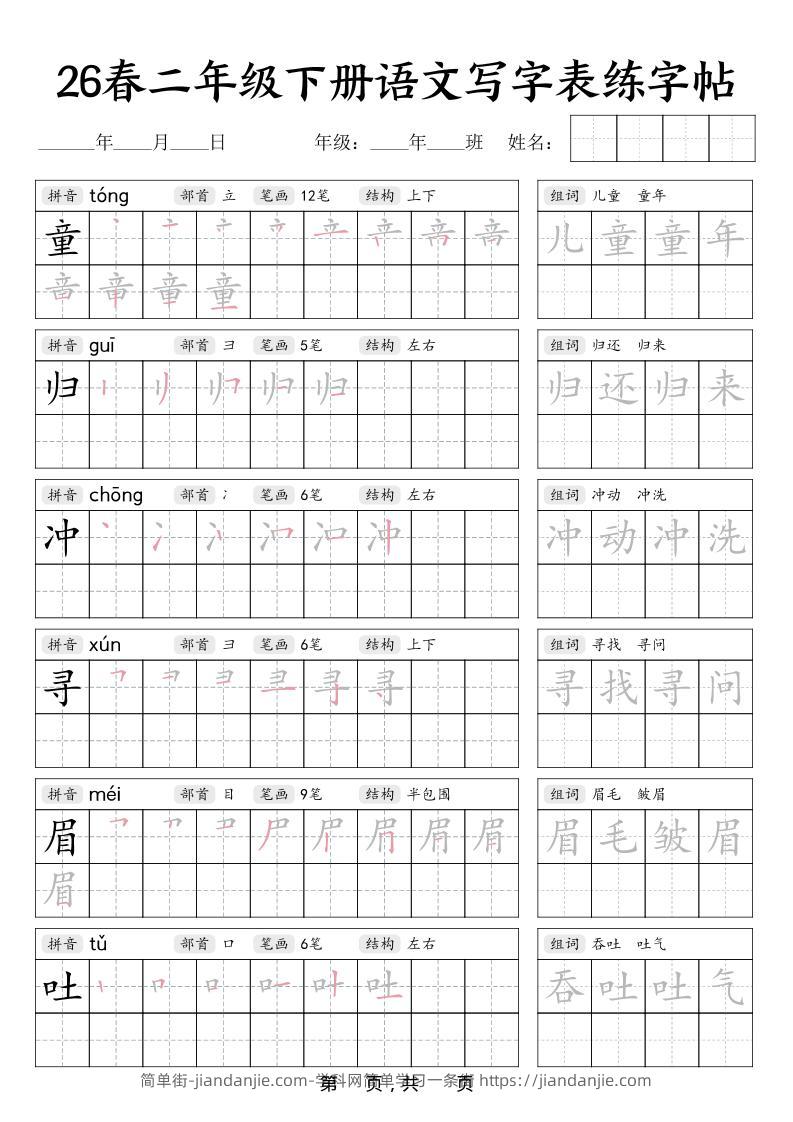 26春二年级下册语文写字表练字帖
______年____月____日 年级：____年____班 姓名：
拼音 tóng 部首 立 笔画 12笔 结构 上下 组词 儿童 童年
童 儿童童年
童
拼音 guī 部首 彐 笔画 5笔 结构 左右 组词 归还 归来
归 归还归来
拼音 chōng 部首 冫 笔画 6笔 结构 左右 组词 冲动 冲洗
冲 冲动冲洗
拼音 xún 部首 彐 笔画 6笔 结构 上下 组词 寻找 寻问
寻 寻找寻问
拼音 méi 部首 目 笔画 9笔 结构 半包围 组词 眉毛 皱眉
眉 眉毛皱眉
眉
拼音 tǔ 部首 口 笔画 6笔 结构 左右 组词 吞吐 吐气
吐 吞吐吐气
简单街-jiandanjie.com-学科网简单学习一条街 https://jiandanjie.com
第 页，共 页